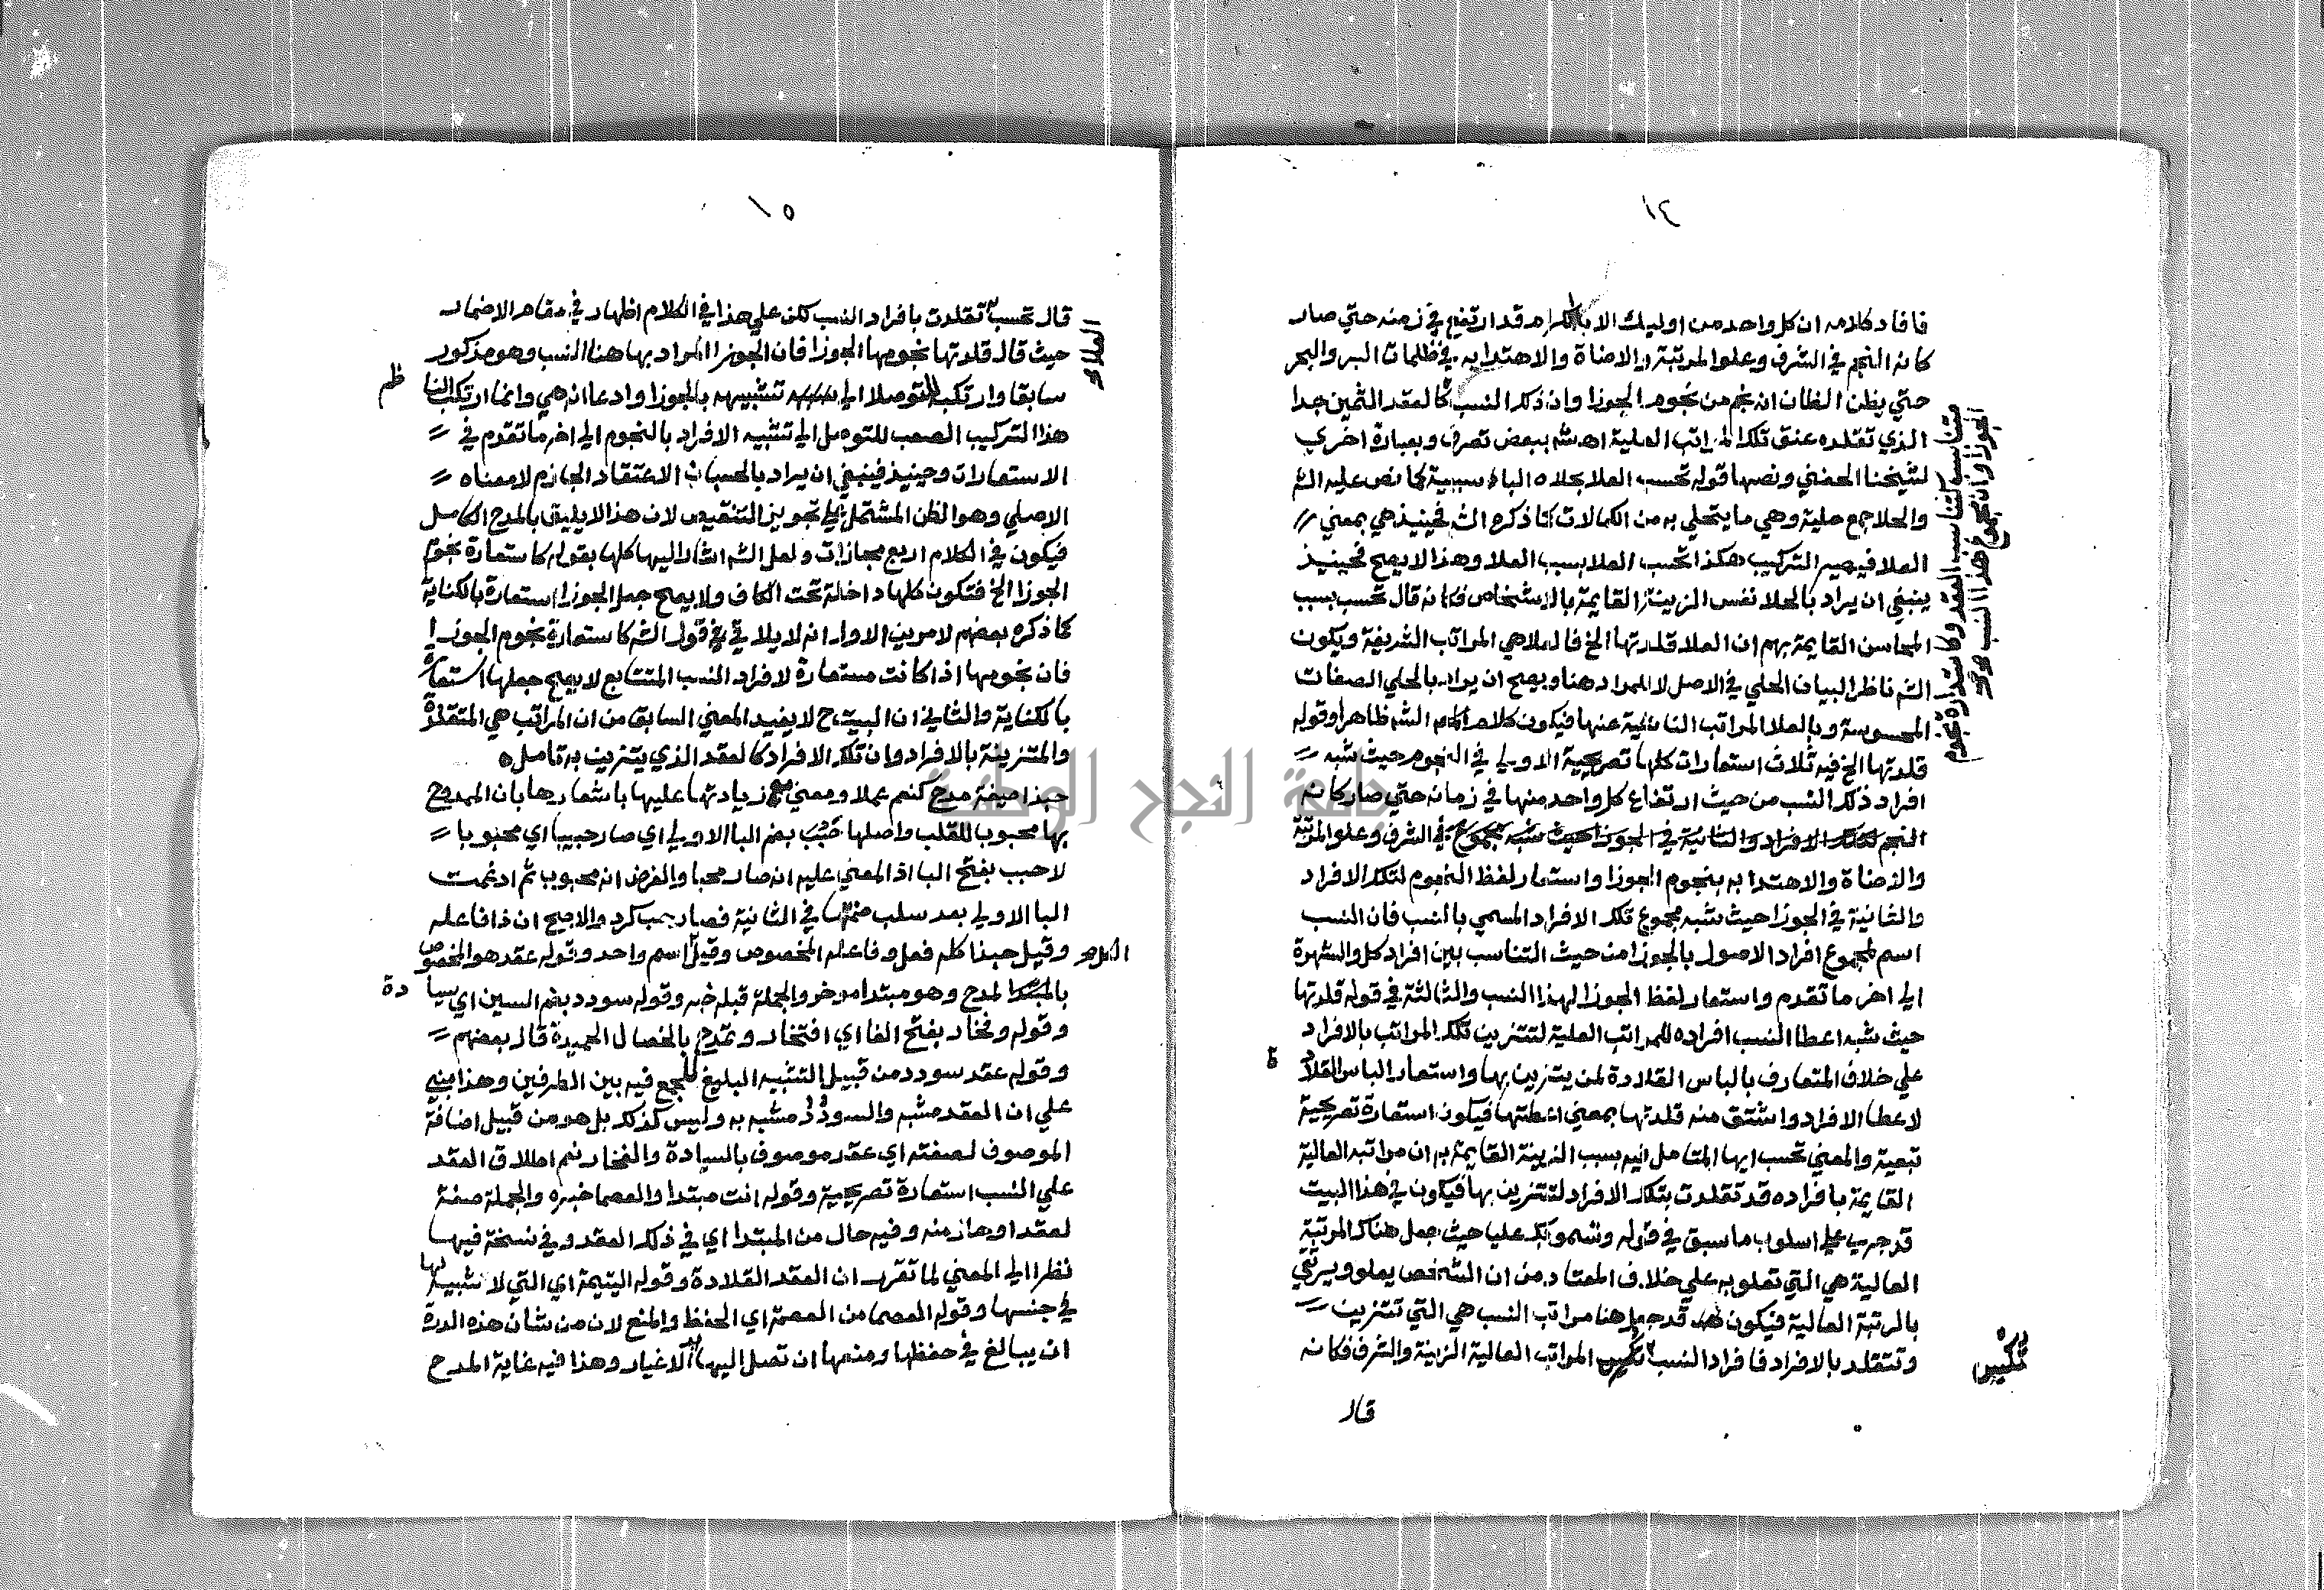 ١٤
فافاد كلامه ان كل واحد من اوليك الاباالكرام قد ارتفع في زمنه حتي صار
كانه النجم في الشرف وعلوا المرتبة والاضاة والاهتدا به في ظلمات البر والبحر
حتي يظن الظان انه نجم من نجوم الجوزا وان ذلك النسب كالعقد الثمين جدا
الذي تقلده عنق تلك المراتب العلية اهـ شه ببعض تصرف وبعبارة اخري
لشيخنا الحفني ونصها قوله تحسب العلا بحلاه الباء سببية كما نص عليه الشه
والحلا جمع حلية وهي ما يتحلي به من الكمالات كما ذكره الشه فحينيذ هي بمعني
العلا فيصير التركيب هكذا تحسب العلا بسبب العلا وهذا لا يصح فحينيذ
ينبغي ان يراد بالحلا نفس الزينة القايمة بالاشخاص فكانه قال تحسب بسبب
المحاسن القايمة بهم ان العلا قلدتها الخ فالعلا هي المراتب الشريفة ويكون
الشه ناظرا لبيان الحلي في الاصل لا المراد هنا ويصح ان يراد بالحلي الصفات
المحسوسة وبالعلا المراتب الناشية عنها فيكون كلام الشه ظاهرا وقوله
قلدتها الخ فيه ثلاث استعارات كلها تصريحية الاولي في النجوم حيث شبه
افراد ذلك النسب من حيث ارتفاع كل واحد منها في زمانه حتي صار كانه
النجم لتلك الافراد والثانية في الجوزا حيث شبه مجموع في الشرف وعلو المرتبة
والاضاة والاهتدا به بنجوم الجوزا واستعار لفظ النجوم لتلك الافراد
والثانية في الجوزا حيث شبه مجموع تلك الافراد المسمي بالنسب فان النسب
اسم لمجموع افراد الاصول بالجوزا من حيث التناسب بين افراد كل والشهرة
الي اخر ما تقدم واستعار لفظ الجوزا لهذا النسب والثالثة في قوله قلدتها
حيث شبه اعطا النسب افراده للمراتب العلية لتتزين تلك المراتب بالافراد
علي خلاف المتعارف بالباس القلادة لمن يتزين بها واستعار الباس القلادة
لاعطا الافراد واشتق منه قلدتها بمعني اعطتها فيكون استعارة تصريحية
تبعية والمعني تحسب ايها المتامل فيه بسبب الزينة القايمة به ان مراتبه العالية
القايمة بافراده قد تقلدت بتلك الافراد لتتزين بها فيكون في هذا البيت
قد جري علي اسلوب ما سبق في قوله وتسمو بك عليا حيث جعل هناك المرتبة
العالية هي التي تعلو به علي خلاف المعتاد من ان الشخص يعلو ويرتقي
بالمرتبة العالية فيكون قد جعل هنا مراتب النسب هي التي تتزين
وتتقلد بالافراد فافراد النسب تكسي المراتب العالية الزينة والشرف فكانه
قال
متناسب كتناسب العقد وكاستعارة نجوم
الجوزا وان مجموع هذا النسب هو
١٥
قال تحسب تقلدت بافراد النسب لكن علي هذا في الكلام اظهار في مقام الاضمار
حيث قال قلدتها نجومها الجوزا فان الجوزا المراد بها هنا النسب وهو مذكور
سابقا وارتكب للتوصلا الي تشبيهه بالجوزا وادعا انه هي وانما ارتكب الناظم
هذا التركيب الصعب للتوصل الي تشبيه الافراد بالنجوم الي اخر ما تقدم في
الاستعارات وحينيذ فينبغي ان يراد بالحسبان الاعتقاد الجازم لا معناه
الاصلي وهو الظن المشتمل علي تجويز التنقيص لان هذا لا يليق بالمدح الكامل
فيكون في الكلام اربع مجازات ولعل الشه اشار اليها كلها بقوله كاستعارة نجوم
الجوزا الخ فتكون كلها داخلة تحت الكاف ولا يصح جعل الجوزا استعارة بالكناية
كما ذكره بعضهم لامرين الاول انه لا يلاقي قول الشه كاستعارة نجوم الجوزا
فان نجومها اذا كانت مستعارة لافراد النسب المتتابع لا يصح جعلها استعارة
بالكناية والثاني ان البيت ح لا يفيد المعني السابق من ان المراتب هي المتقلدة
والمتزينة بالافراد وان تلك الافراد كالعقد الذي يتزين به تامل ه
حبذا صيغة مدح كنعم عملا ومعني مع زيادتها عليها باشعارها بان الممدوح
بها محبوب للقلب واصلها حَبُبَ بضم البا الاولي اي صار حبيبا اي محبوبا
لا حبب بفتح البا اذ المعني عليه انه صار محبا والفرض انه محبوب ثم ادغمت
البا الاولي بعد سلب ضمتها في الثانية فصار حب كرد والاصح ان ذا فاعله
وقيل حبذا كله فعل وفاعله المخصوص وقيل اسم واحد وقوله عقد هو المخصوص
بالمدح وهو مبتدا موخر والجملة قبله خبره وقوله سودد بضم السين اي سيادة
وقوله وفخار بفتح الفا اي افتخار وتمدح بالخصال الحميدة قال بعضهم
وقوله عقد سودد من قبيل التشبيه البليغ للجمع فيه بين الطرفين وهذا مبني
علي ان العقد مشبه والسودد مشبه به وليس كذلك بل هو من قبيل اضافة
الموصوف لصفته اي عقد موصوف بالسيادة والفخار نعم اطلاق العقد
علي النسب استعارة تصريحية وقوله انت مبتدا والعصما خبره والجملة صفة
لعقد او حاز منه وفيه حال من المبتدا اي في ذلك العقد وفي نسخة فيها
نظرا الي المعني لما تقرر ان العقد القلادة وقوله اليتيمة اي التي لا شبيه لها
في جنسها وقوله العصما من العصمة اي الحفظ والمنع لان من شان هذه الدرة
ان يبالغ في حفظها ومنعها ان تصل اليها الاغيار وهذا فيه غاية المدح
جامعة النجاح الوطنية